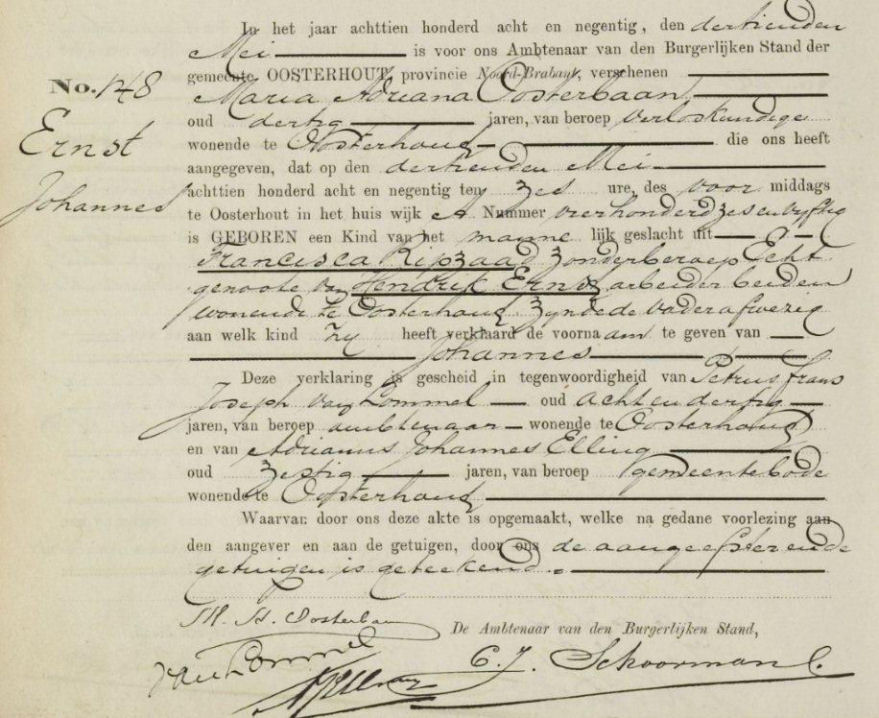 In het jaar achttien honderd acht en negentig, den dertienden
Mei is voor ons Ambtenaar van den Burgerlijken Stand der
gemeente OOSTERHOUT, provincie Noord-Brabant, verschenen
No. 148
Maria Adriana Oosterbaan,
oud dertig jaren, van beroep Verloskundige
Ernst
wonende te Oosterhout die ons heeft
aangegeven, dat op den dertienden Mei
Johannes
achttien honderd acht en negentig ten zes ure, des voor middags
te Oosterhout in het huis wijk A Nummer vierhonderd zes en vyftig
is GEBOREN een Kind van het manne lijk geslacht uit
Francisca Ripzaad zonder beroep Echt
genoote van Hendrik Ernst arbeider beiden
wonende te Oosterhout zynde de vader afwezig
aan welk kind zy heeft verklaard de voornaam te geven van
Johannes
Deze verklaring is geschied in tegenwoordigheid van Petrus Frans
Joseph van Lommel oud acht en dertig
jaren, van beroep ambtenaar wonende te Oosterhout
en van Adrianus Johannes Elling
oud zestig jaren, van beroep gemeentebode
wonende te Oosterhout
Waarvan door ons deze akte is opgemaakt, welke na gedane voorlezing aan
den aangever en aan de getuigen, door ons de aangeefster en de
getuigen is geteekend.
M. A. Oosterbaan
De Ambtenaar van den Burgerlijken Stand,
van Lommel
C. J. Schoorman